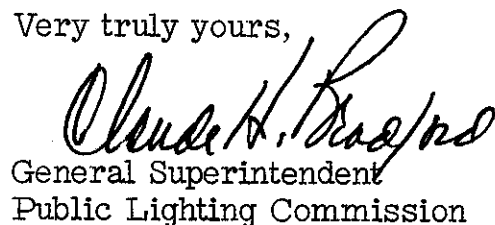 Very truly yours,
Claude H. Bradford
General Superintendent
Public Lighting Commission